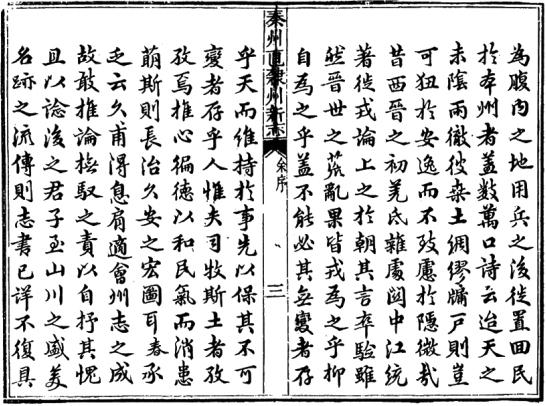 為腹內之地用兵之後徙置回民
於本州者蓋數萬口詩云迨天之
未陰雨徹彼桑土綢繆牖戶則豈
可狃於安逸而不致慮於隱微哉
昔西晉之初羌氐雜處關中江統
著徙戎論上之於朝其言卒驗雖
然晉世之荒亂果皆戎為之乎抑
自為之乎蓋不能必其無變者存
秦州直隸州新志
余序
三
乎天而維持於事先以保其不可
變者存乎人惟夫司牧斯土者孜
孜焉推心徧德以和民氣而消患
萌斯則長治久安之宏圖耳春承
乏云久甫得息肩適會州志之成
故敢推論撫馭之責以自抒其愧
且以諗後之君子至山川之盛美
名跡之流傳則志書已詳不復具